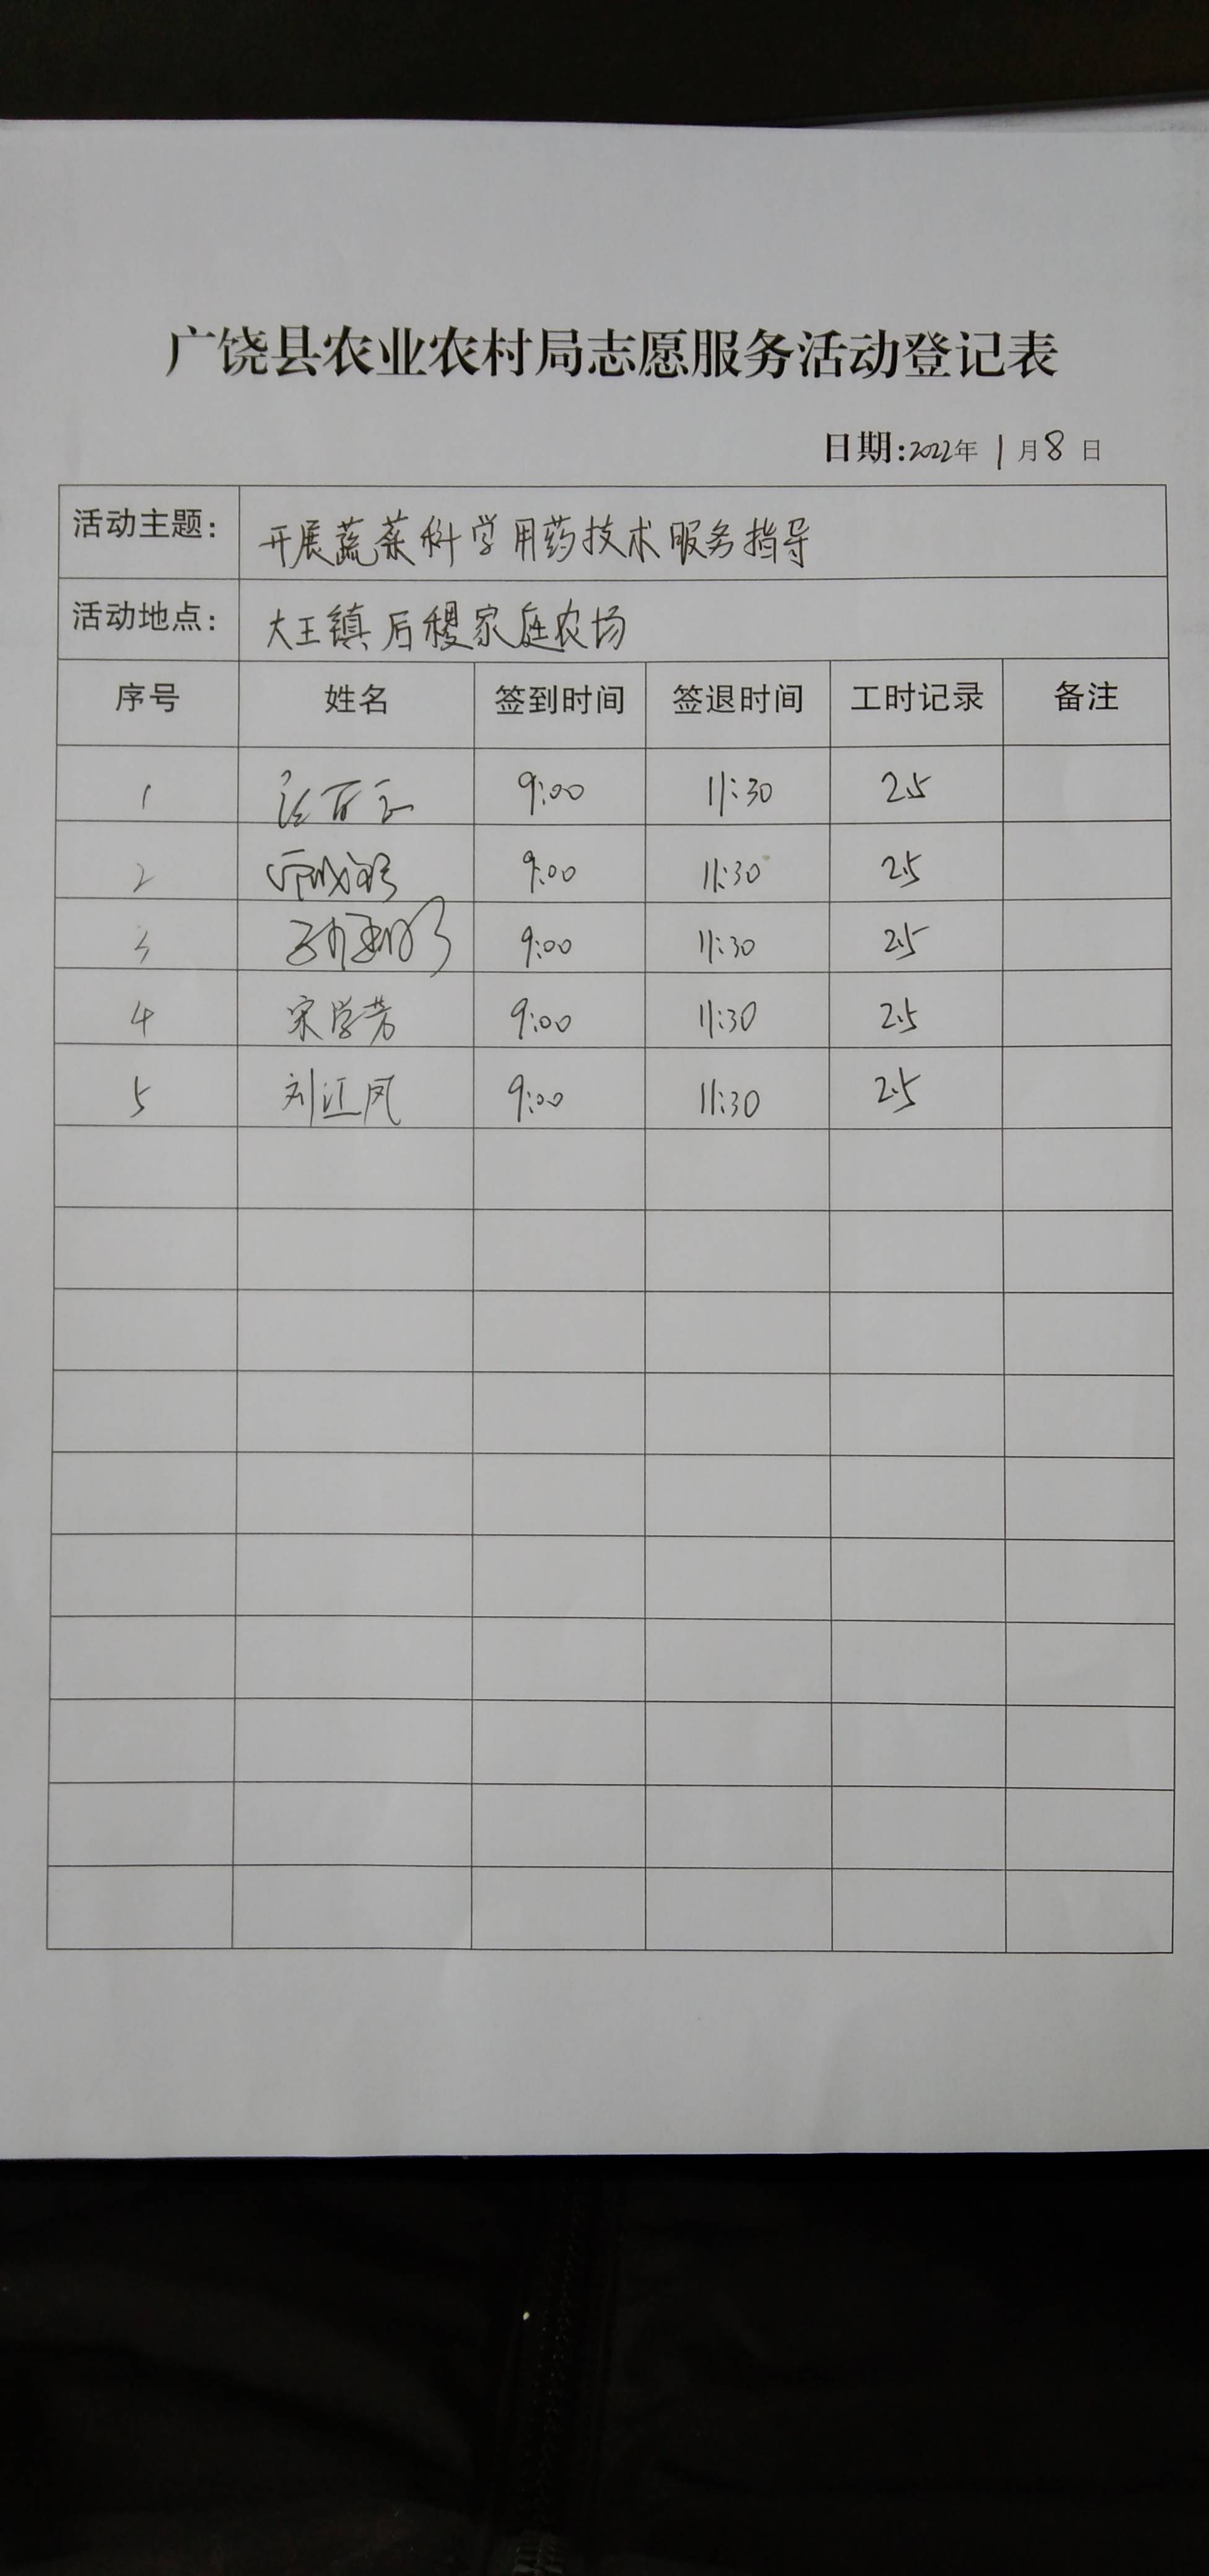 广饶县农业农村局志愿服务活动登记表
日期:2022年 1月8日
活动主题: 开展蔬菜科学用药技术服务指导
活动地点: 大王镇后稷家庭农场
序号 姓名 签到时间 签退时间 工时记录 备注
1 9:00 11:30 2.5
2 9:00 11:30 2.5
3 9:00 11:30 2.5
4 宋学芳 9:00 11:30 2.5
5 刘江凤 9:00 11:30 2.5